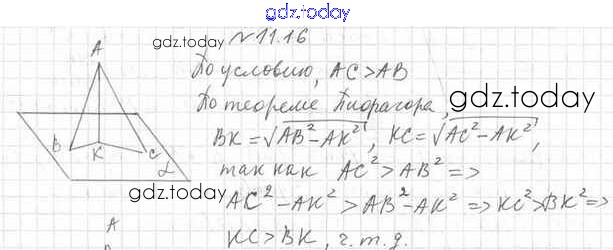 gdz.today
gdz.today
N11.16
A
По условию, AC>AB
По теореме Пифагора,
gdz.today
BK=√AB²-AK², KC=√AC²-AK²,
B
K
C
α
так как AC²>AB² =>
gdz.today
AC²-AK²>AB²-AK² => KC²>BK² =>
A
KC>BK, ч.т.д.